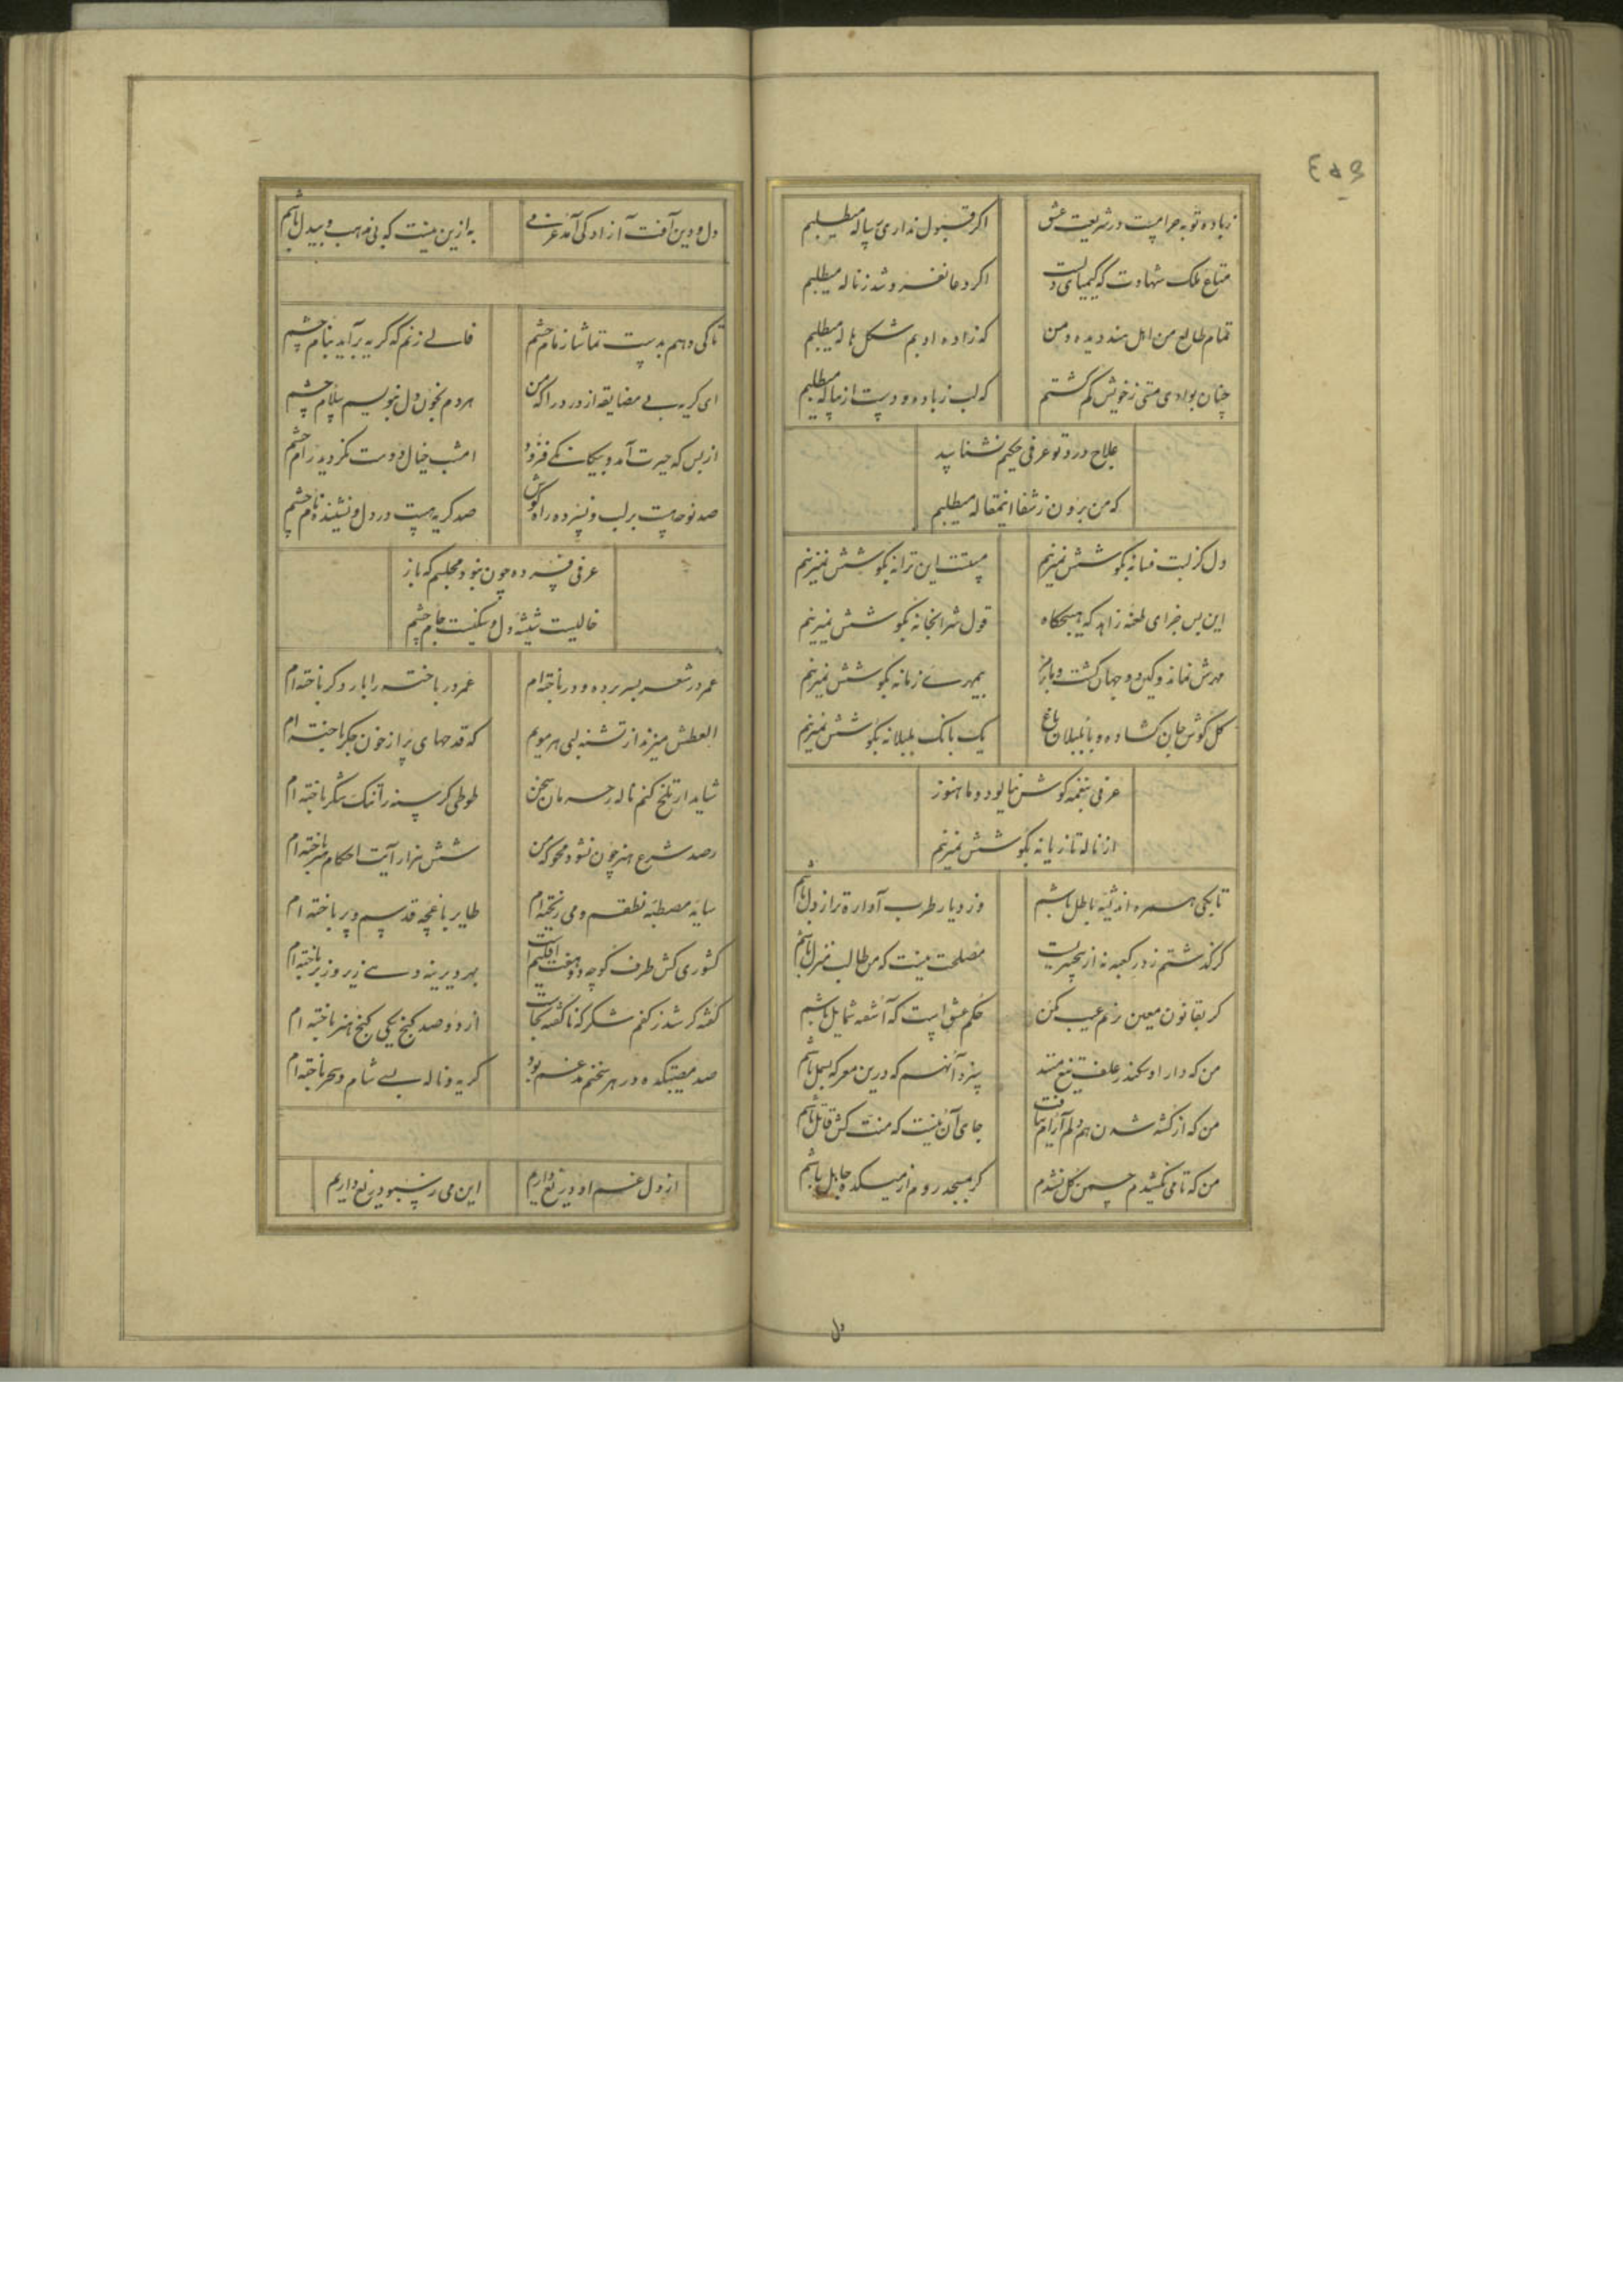 زباده توبه حرامست در شریعت عشق اکر قبول نداری پیاله میطلبم
متاع ملک شهادت که کیمیای اکر دعا نفروشد زناله میطلبم
تمام طالع من اهل هند دیده و من که زاده ادبم شکل هاله میطلبم
چنان بوادی مستی زخویش کم کشتم که لب زباده و دست از پیاله میطلبم
علاج درد تو عرفی حکیم نشناسد
که من برون زشفا اینمقاله میطلبم
دل کز لبت فسانه بکوشش نمیزنم مستست این ترانه بکوشش نمیزنم
این بس جزای طعنه زاهد که هیچکاه قول شرابخانه بکوشش نمیزنم
مهرش نماند و کین دو جهان کشت و باز بیمهری زمانه بکوشش نمیزنم
کل کوش جان کشاده و با بلبلان باغ یک بانک بلبلانه بکوشش نمیزنم
عرفی بنغمه کوش نمالود و ما هنوز
از ناله تازیانه بکوشش نمیزنم
تا بکی همره اندیشه باطل باشم وز دیار طرب آواره تر از دل باشم
کر کذشتم ز در کعبه نه از بیخبریست مصلحت نیست که من طالب منزل باشم
کر بقانون معین زنم عیب مکن حکم عشق است که آشفته شمایل باشم
من که دارا و سکندر علف تیغ منند نه آنهم که درین معرکه بسمل باشم
من که از کشته شدن هم دلم آرام نیافت جای آن نیست که منت کش قاتل باشم
من که تا می نکشیدم چمن کل نشدم کر بمسجد روم از میکده جاهل باشم
دل
دل و دین آفت آزادکی آمد عرفی به ازین نیست که بی مذهب و بیدل باشم
تا کی دهم بدست تماشا زمام چشم فالی زنم که کریه برآید بنام چشم
ای کریه بی مضایقه از در درا که من هردم بخون دل بنویسم سلام چشم
از بس که حیرت آمد و بیکانکی فزود امشب خیال دوست نکردید رام چشم
صد نوحه هست بر لب و نسپرده راه کوش صد کریه هست در دل و نشنیده نام چشم
عرفی فسرده چون نبود مجلسم که باز
خالیست شیشه دل و بشکست جام چشم
عمر در شعر بسر برده و در باخته ام عمر در باخته را بار دکر باخته ام
العطش میزند از تشنه لبی هر مویم که قدحهای پر از خون جکر باخته ام
شاید ار تلخ کنم ناله حرمان سخن طوطی کرسنه را تنک شکر باخته ام
رصد شرع هنر چون نشود محو که من شش هزار آیت احکام هنر باخته ام
سایه مصطبه نطقم و می ریخته ام طایر باغچه قدسم و پر باخته ام
کشوری کش طرف کوچه دو هفت اقلیمست بهر ویرینه دمی زیر و زبر باخته ام
کفته کر شد ز کفم شکر که ناکفته بجاست از دو صد کنج یکی کنج هنر باخته ام
صد مصیبتکده در هر سخنم مدغم بود کریه و ناله بی شام و سحر باخته ام
از دل غم او دریغ داریم این می ز سبو دریغ داریم